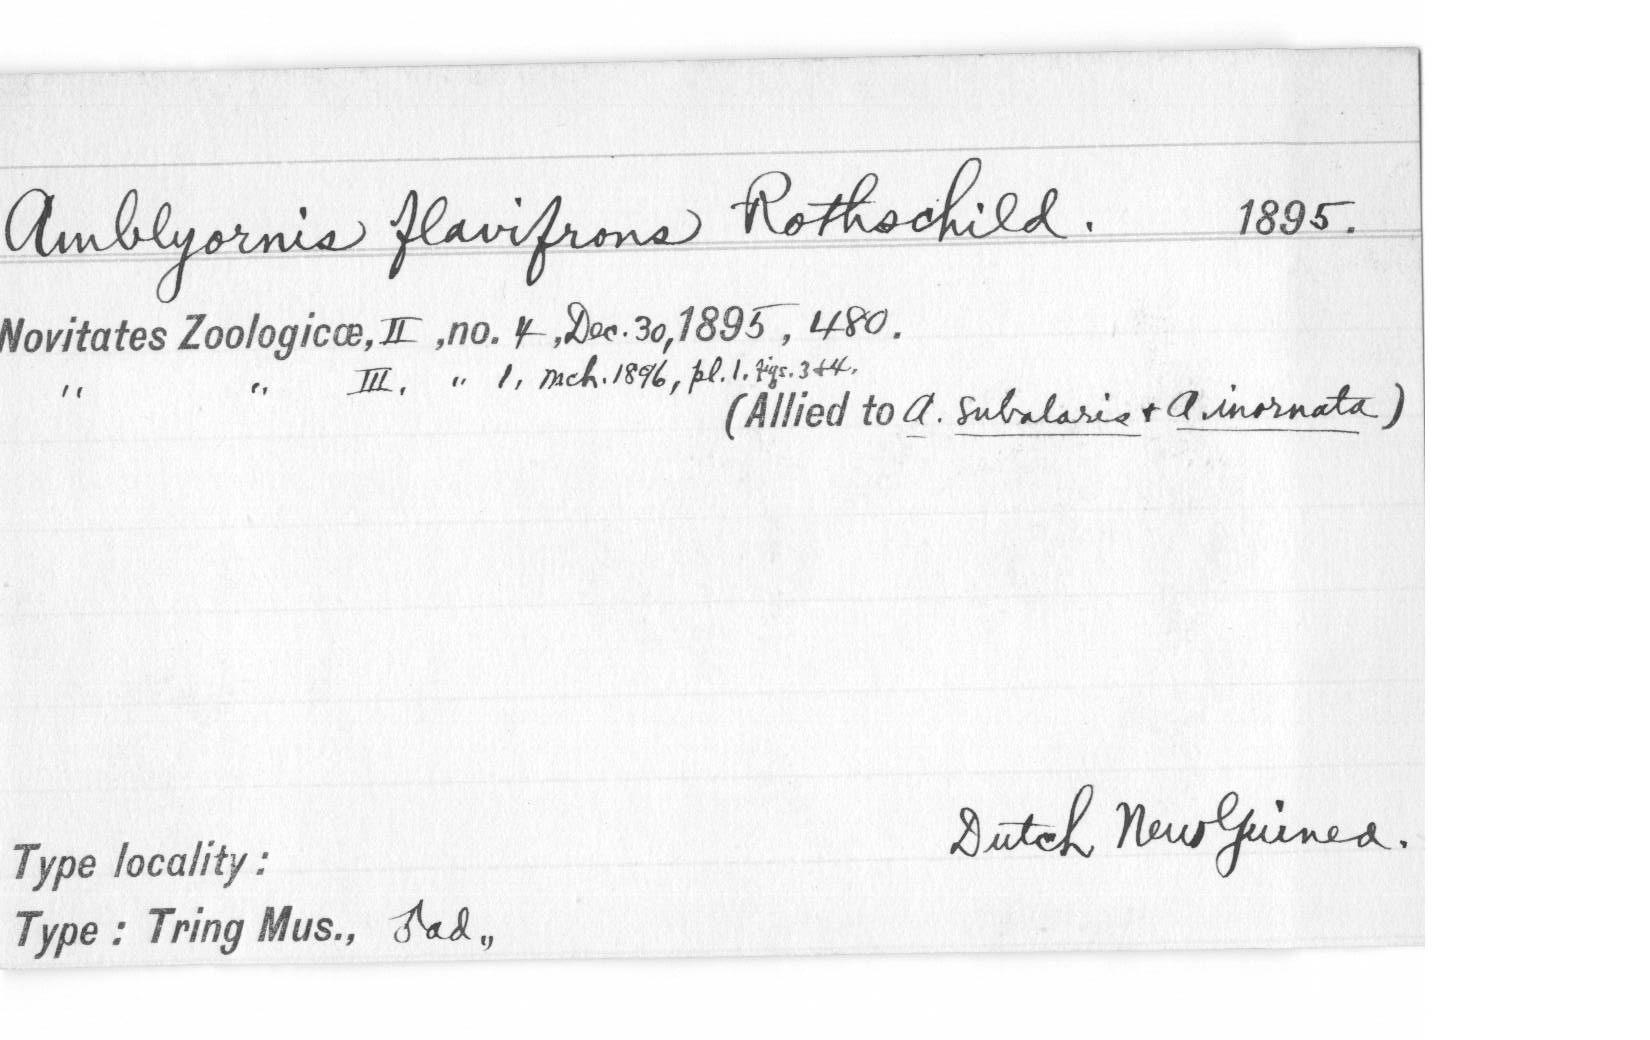 Amblyornis flavifrons Rothschild. 1895.
Novitates Zoologicæ, II, no. 4, Dec. 30, 1895, 480.
" " III, " 1, Mch. 1896, pl. 1. figs. 3+4.
(Allied to A. subalaris + A. inornata)
Dutch New Guinea.
Type locality:
Type: Tring Mus., ♂ad.,,